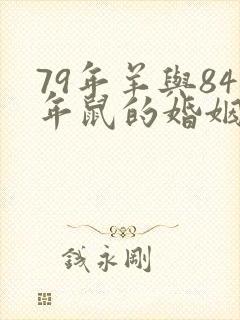 79年羊與84
年鼠的婚姻
錢永剛